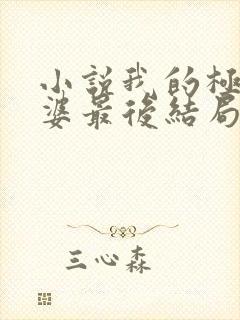 小說我的極
婆最後結局
三心森